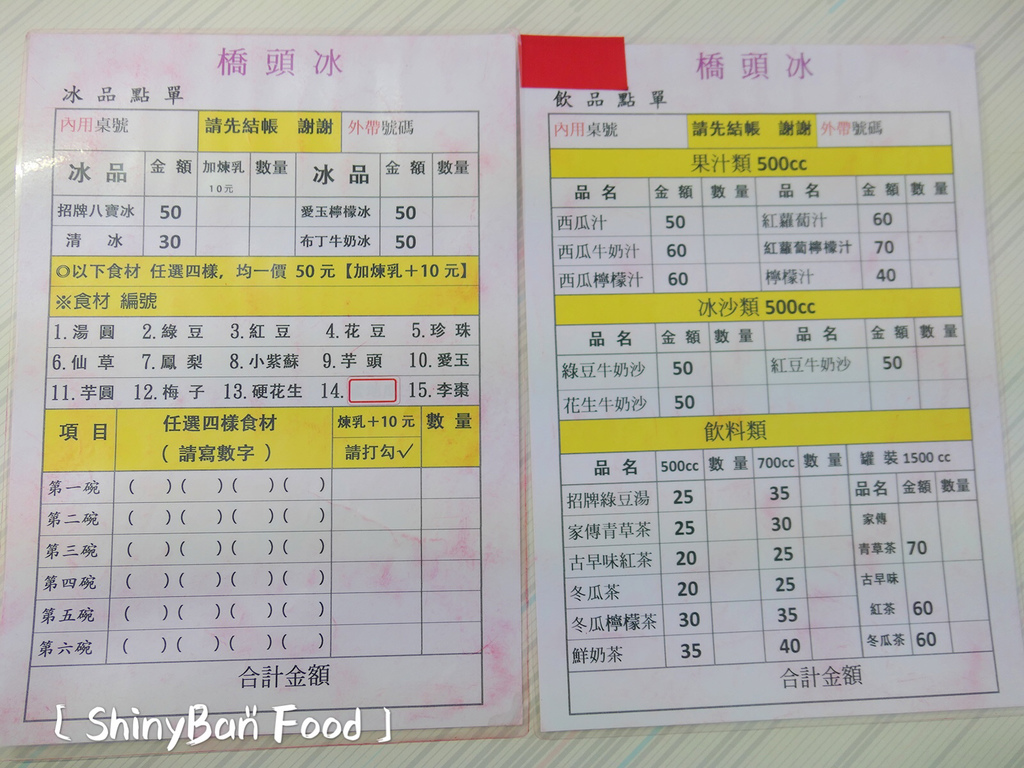 橋頭冰
冰品點單
內用桌號 請先結帳 謝謝 外帶號碼
冰品 金額 加煉乳10元 數量 冰品 金額 數量
招牌八寶冰 50 愛玉檸檬冰 50
清冰 30 布丁牛奶冰 50
◎以下食材 任選四樣, 均一價 50元【加煉乳+10元】
※食材 編號
1.湯圓 2.綠豆 3.紅豆 4.花豆 5.珍珠
6.仙草 7.鳳梨 8.小紫蘇 9.芋頭 10.愛玉
11.芋圓 12.梅子 13.硬花生 14. 15.李棗
項目 任選四樣食材 煉乳+10元 數量
(請寫數字) 請打勾✓
第一碗 ( )( )( )( )
第二碗 ( )( )( )( )
第三碗 ( )( )( )( )
第四碗 ( )( )( )( )
第五碗 ( )( )( )( )
第六碗 ( )( )( )( )
合計金額
橋頭冰
飲品點單
內用桌號 請先結帳 謝謝 外帶號碼
果汁類 500cc
品名 金額 數量 品名 金額 數量
西瓜汁 50 紅蘿蔔汁 60
西瓜牛奶汁 60 紅蘿蔔檸檬汁 70
西瓜檸檬汁 60 檸檬汁 40
冰沙類 500cc
品名 金額 數量 品名 金額 數量
綠豆牛奶沙 50 紅豆牛奶沙 50
花生牛奶沙 50
飲料類
品名 500cc 數量 700cc 數量 罐裝 1500 cc
品名 金額 數量
招牌綠豆湯 25 35
家傳青草茶 25 30
古早味紅茶 20 25
冬瓜茶 20 25
冬瓜檸檬茶 30 35
鮮奶茶 35 40
家傳
青草茶 70
古早味
紅茶 60
冬瓜茶 60
合計金額
[ ShinyBan Food ]